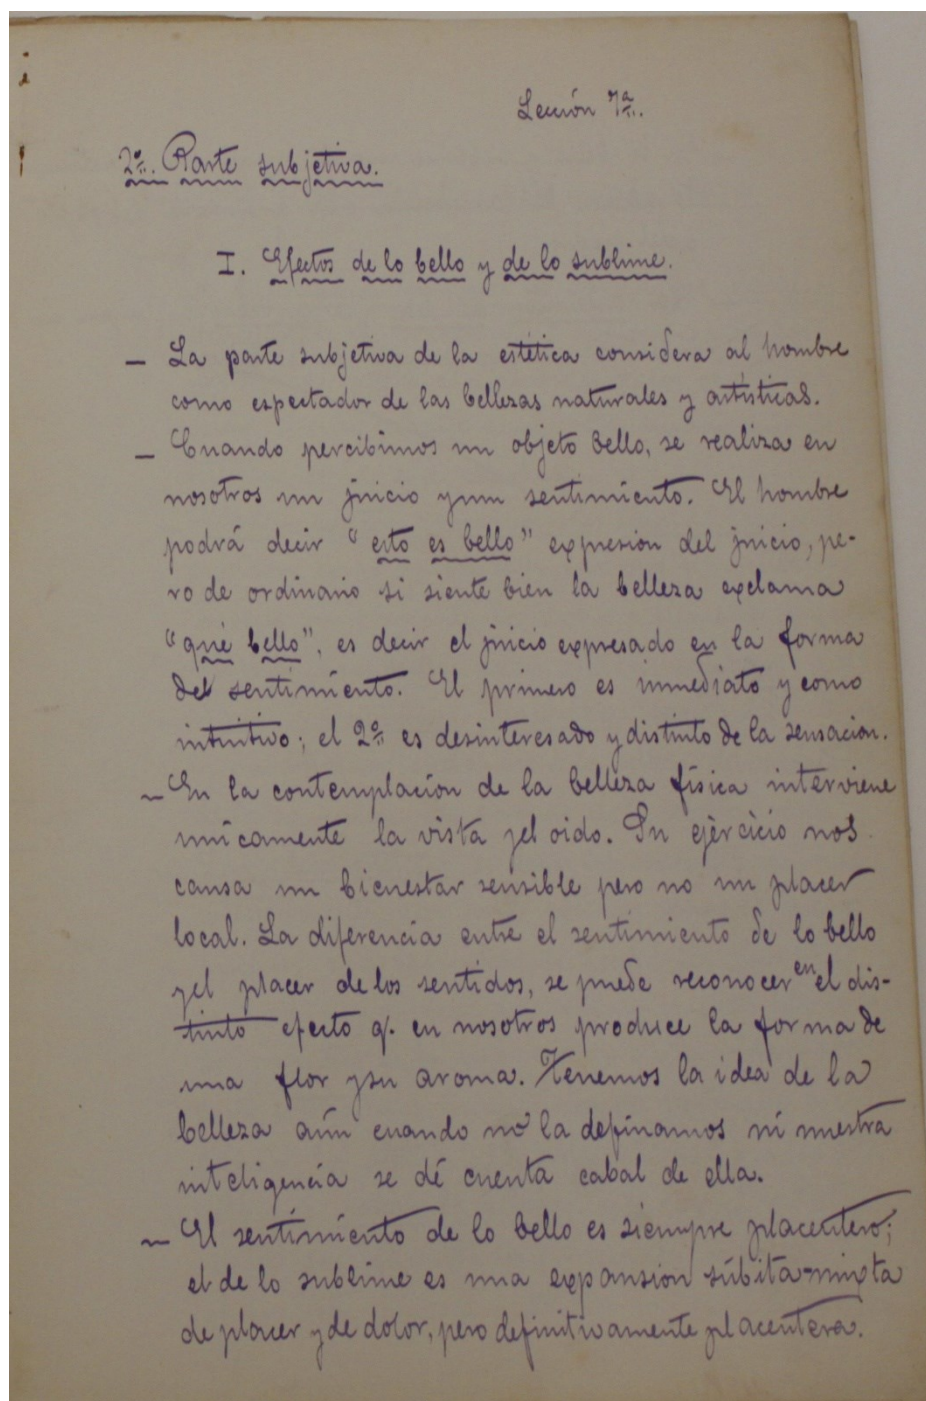 Lección 7ª.
2ª. Parte subjetiva.
I. Efectos de lo bello y de lo sublime.
— La parte subjetiva de la estética considera al hombre
como espectador de las bellezas naturales y artísticas.
— Cuando percibimos un objeto bello, se realiza en
nosotros un juicio y un sentimiento. El hombre
podrá decir "esto es bello" expresion del juicio, pe-
ro de ordinario si siente bien la belleza exclama
"qué bello", es decir el juicio expresado en la forma
del sentimiento. El primero es inmediato y como
intuitivo; el 2º es desinteresado y distinto de la sensacion.
— En la contemplación de la belleza física interviene
unicamente la vista y el oido. Su ejercicio nos
causa un bienestar sensible pero no un placer
local. La diferencia entre el sentimiento de lo bello
y el placer de los sentidos, se puede reconocer en el dis-
tinto efecto q. en nosotros produce la forma de
una flor y su aroma. Tenemos la idea de la
belleza aún cuando no la definamos ni nuestra
inteligencia se dé cuenta cabal de ella.
— El sentimiento de lo bello es siempre placentero;
el de lo sublime es una expansion súbita mixta
de placer y de dolor, pero definitivamente placentera.